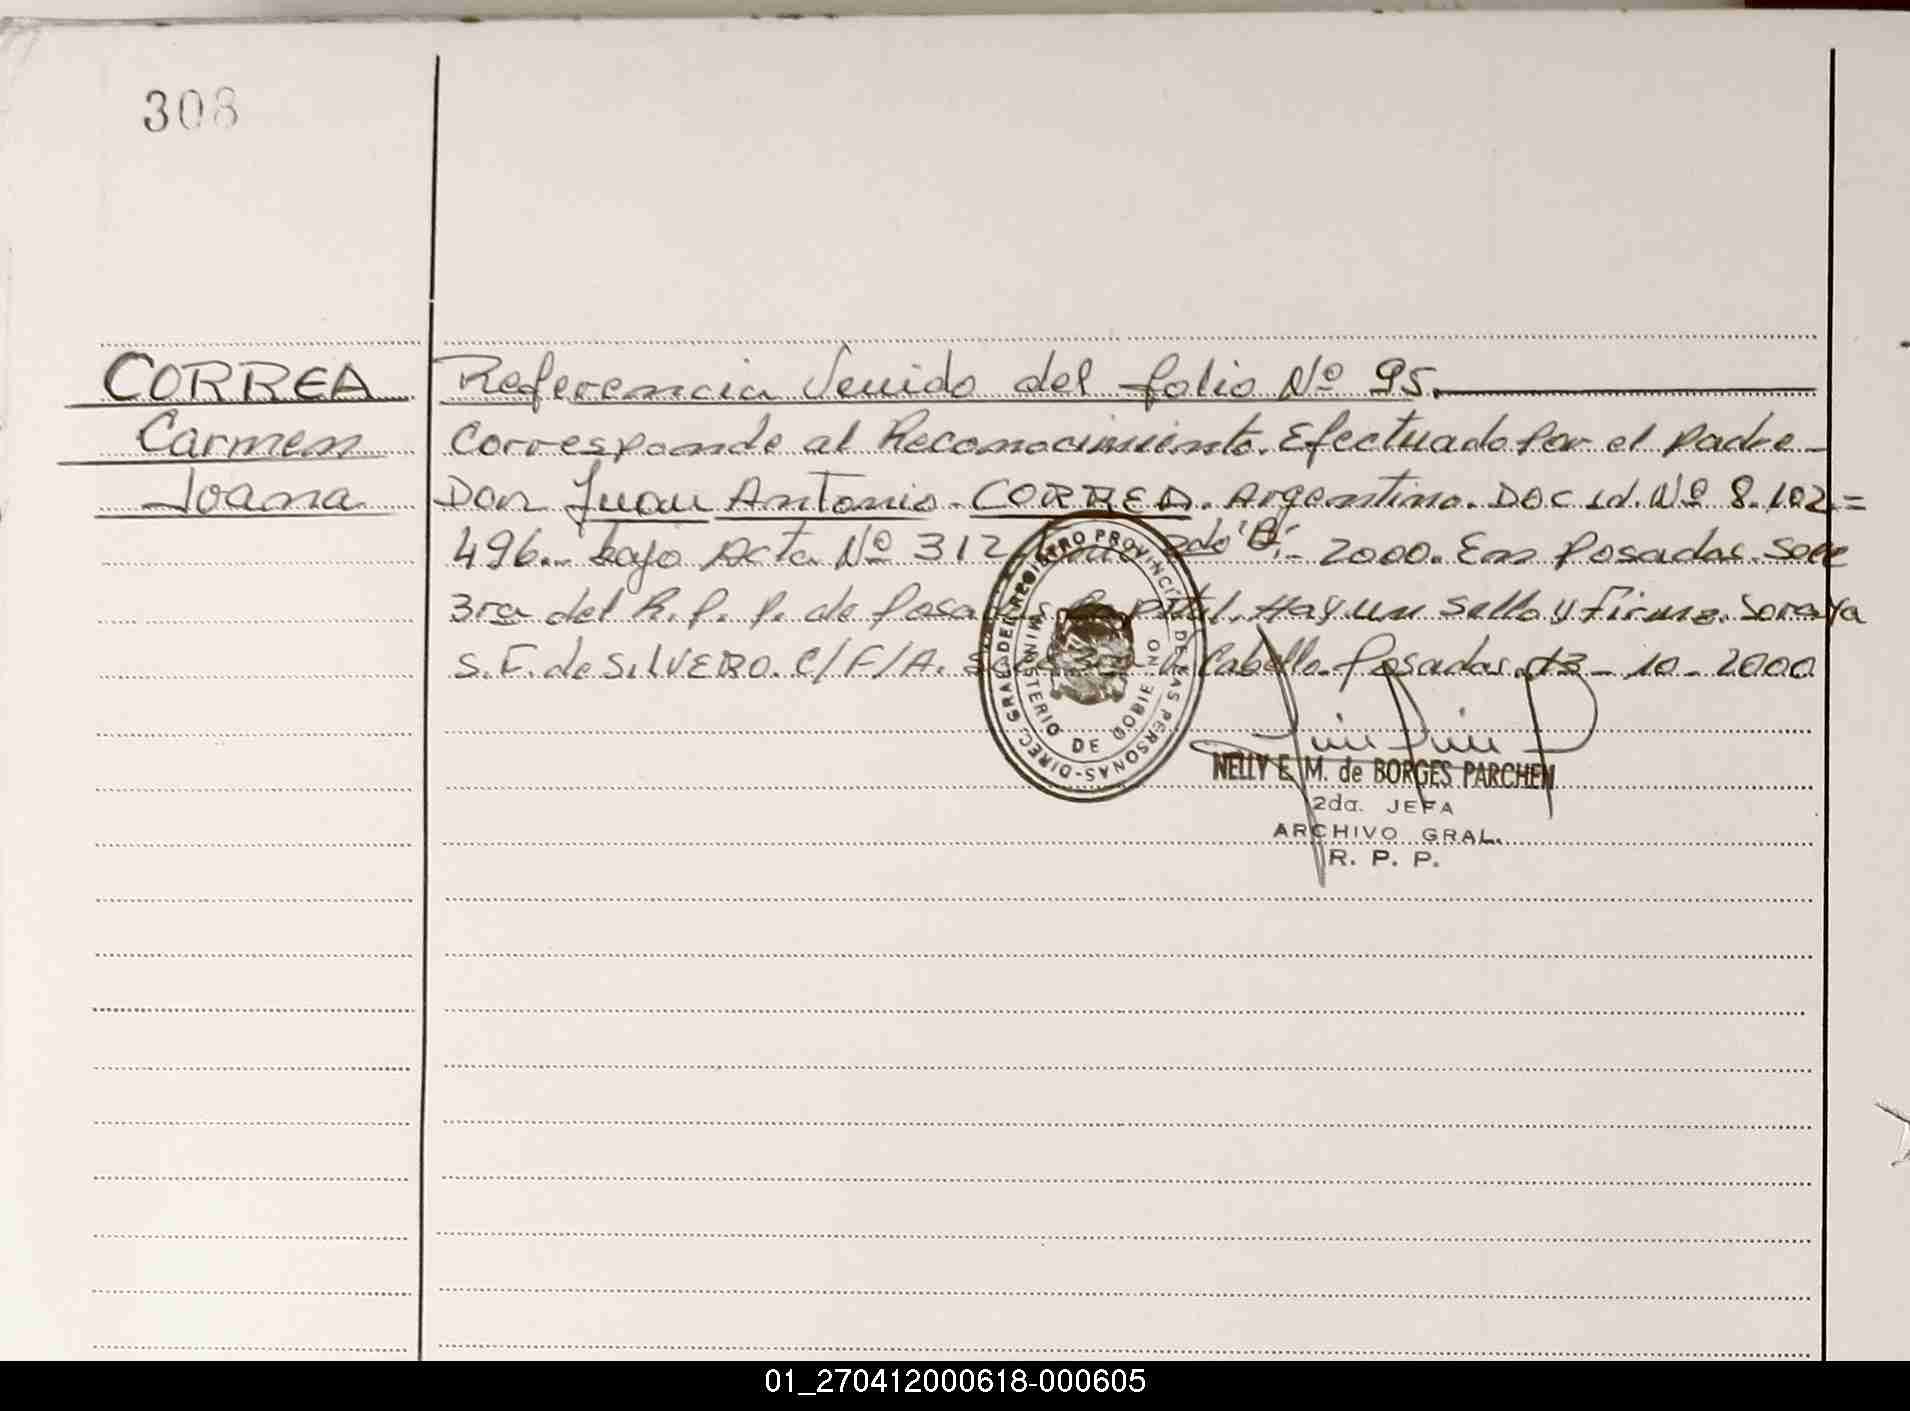 308
CORREA
Carmen
Joana
Referencia Venido del folio Nº 95.
Corresponde al Reconocimiento. Efectuado Por el Padre-
Don Juan Antonio. CORREA. Argentino. Doc id. Nº 8.102=
496.- bajo Acta Nº 312 2do "B".- 2000. En Posadas. Secc
3ra del R. P. P. de Posadas Capital. Hay un Sello y Firma. Soraya
S. F. de SILVERO. C/F/A. Cabello. Posadas. 13-10-2000
DIREC. GRAL DEL REGISTRO PROVINCIAL DE LAS PERSONAS-
MINISTERIO DE GOBIERNO
NELLY E. M. de BORGES PARCHEN
2da. JEFA
ARCHIVO GRAL.
R. P. P.
01_270412000618-000605